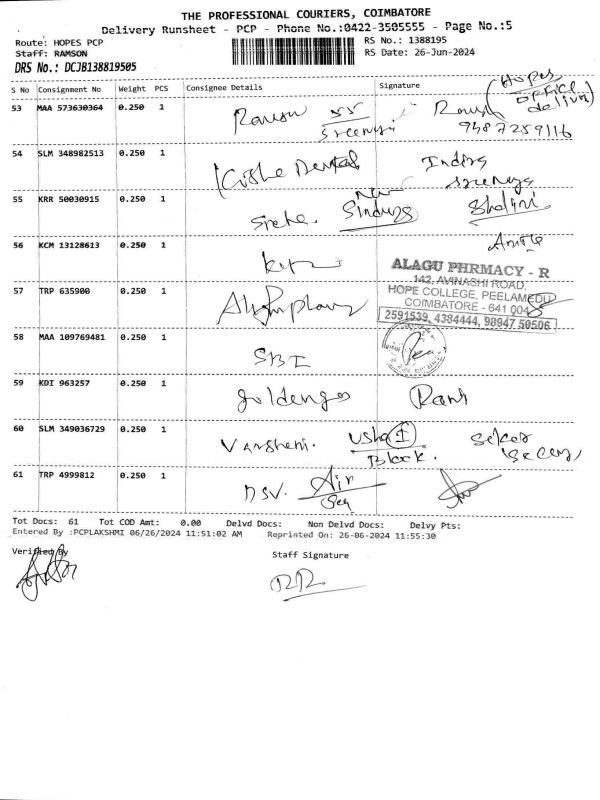 THE PROFESSIONAL COURIERS, COIMBATORE
Delivery Runsheet - PCP - Phone No.:0422-3505555 - Page No.:5
Route: HOPES PCP RS No.: 1388195
Staff: RAMSON RS Date: 26-Jun-2024
DRS No.: DCJB138819505
S No Consignment No Weight PCS Consignee Details Signature
(Hopes office
53 MAA 573630364 0.250 1 55
9387259116
54 SLM 348982513 0.250 1 Dental
55 KRR 50030915 0.250 1 Sneha. Shalini
56 KCM 13128613 0.250 1
ALAGU PHRMACY - R
142, AVINASHI ROAD,
HOPE COLLEGE, PEELAMEDU
COIMBATORE - 641 004
2591539, 4384444, 98947 50506
57 TRP 635900 0.250 1
58 MAA 109769481 0.250 1 SBI
59 KDI 963257 0.250 1 Rani
60 SLM 349036729 0.250 1 Varsheni. Usha I
Block.
61 TRP 4999812 0.250 1 DSV. Air
Sea
Tot Docs: 61 Tot COD Amt: 0.00 Delvd Docs: Non Delvd Docs: Delvy Pts:
Entered By :PCPLAKSHMI 06/26/2024 11:51:02 AM Reprinted On: 26-06-2024 11:55:30
Verified By Staff Signature